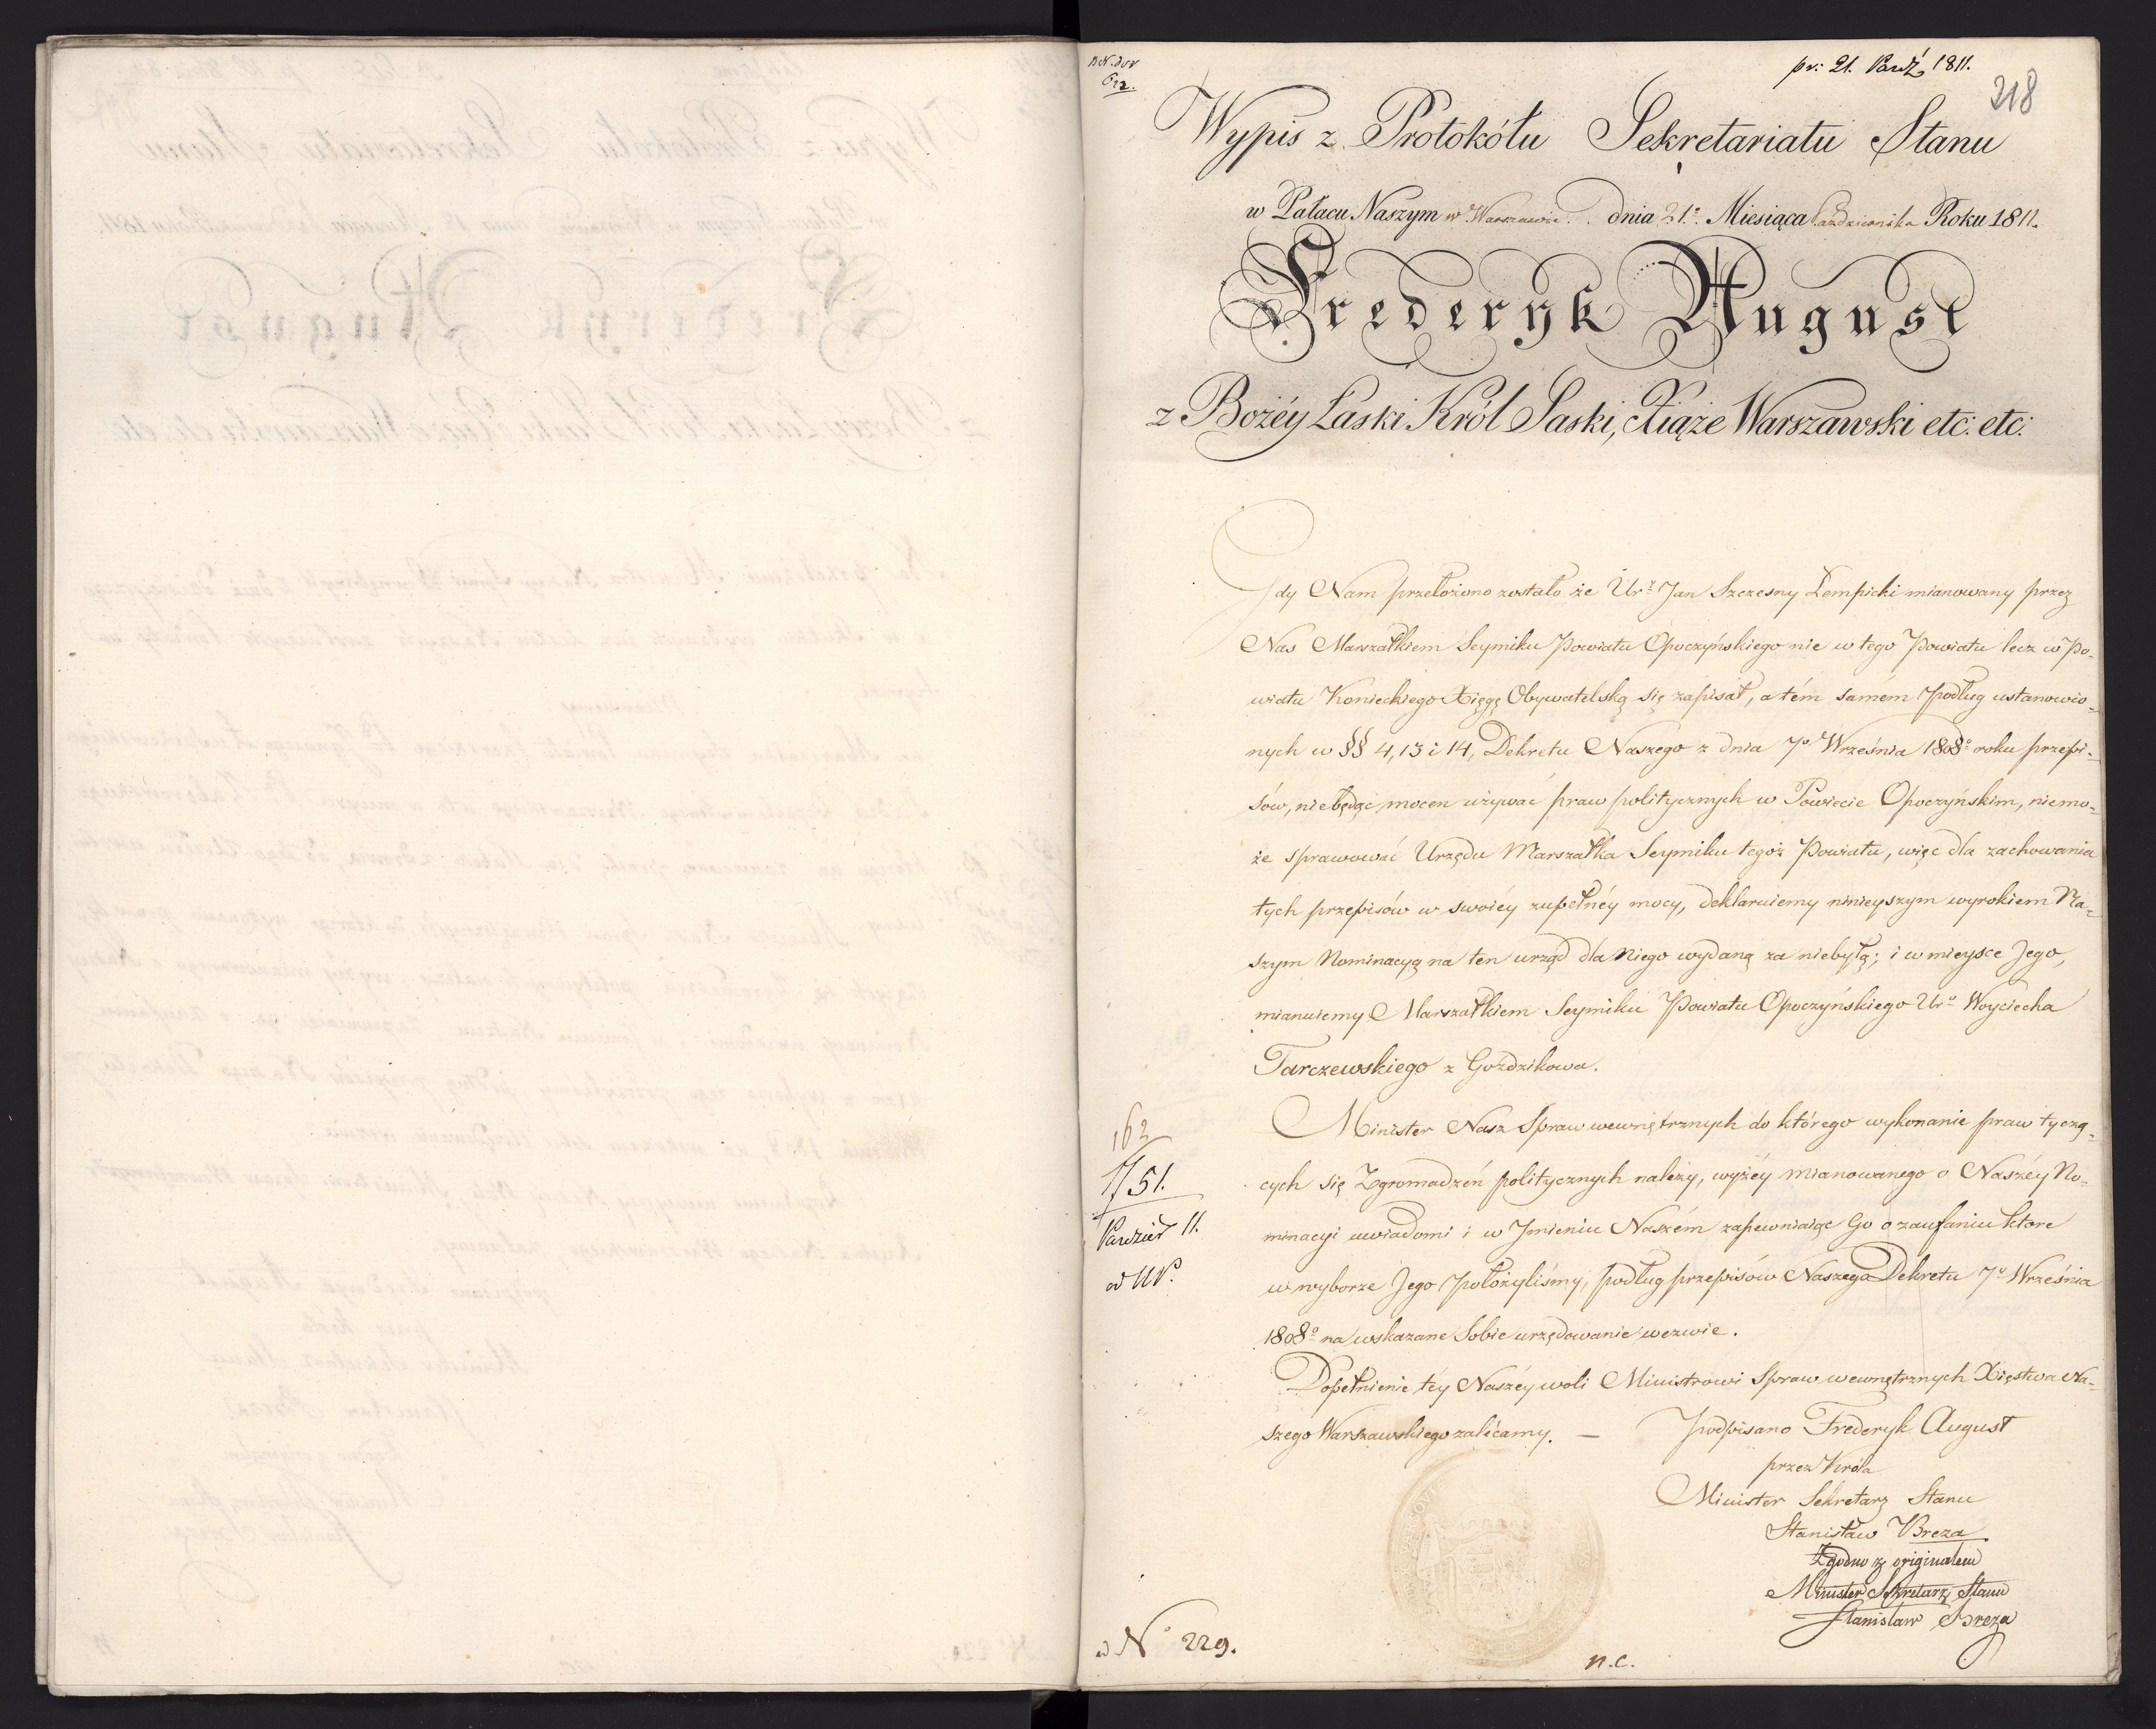 pr: 21. Paźdź 1811.
218
Wypis z Protokółu Sekretariatu Stanu
w Pałacu Naszym w Warszawie dnia 21º Miesiąca Października Roku 1811.
Frederyk August
z Bożéy Łaski Król Saski, Xiąże Warszawski etc: etc:
Gdy Nam przełożono zostało że Urº Jan Szczesny Łempicki mianowany przez
Nas Marszałkiem Seymiku Powiatu Opoczyńskiego nie w tego Powiatu lecz w Po-
wiatu Konieckiego Xięgę Obywatelską się zapisał, a tém samém podług ustanowio-
nych w §§ 4, 13 i 14, Dekretu Naszego z dnia 7º Września 1808º roku przepi-
sów, niebędąc mocen używać praw politycznych w Powiecie Opoczyńskim, niemo-
że sprawować Urzędu Marszałka Seymiku tegoż Powiatu, więc dla zachowania
tych przepisów w swoiéy zupełnéy mocy, deklaruiemy ninieyszym wyrokiem Na-
szym Nominacyą na ten urząd dla Niego wydaną za niebyłą; i w mieysce Jego,
mianuiemy Marszałkiem Seymiku Powiatu Opoczyńskiego Urº Woyciecha
Tarczewskiego z Goździkowa.
Minister Nasz Spraw wewnętrznych do którego wykonanie praw tyczą-
cych się Zgromadzeń politycznych należy, wyżéy mianowanego o Naszéy No-
minacyi uwiadomi i w Jmieniu Naszém zapewniaiąc Go o zaufaniu które
w wyborze Jego położyliśmy, podług przepisów Naszego Dekretu 7º Września
1808º na wskazane Sobie urzędowanie wezwie.
Dopełnienie téy Naszéy woli Ministrowi Spraw wewnętrznych Xięstwa Na-
szego Warszawskiego zalécamy. — podpisano Frederyk August
przez Króla
Minister Sekretarz Stanu
Stanisław Breza
Zgodno z originałem
Minister Sekretarz Stanu
Stanisław Breza
162
1751.
Paździer 11.
ad Nº 229.
n.c.